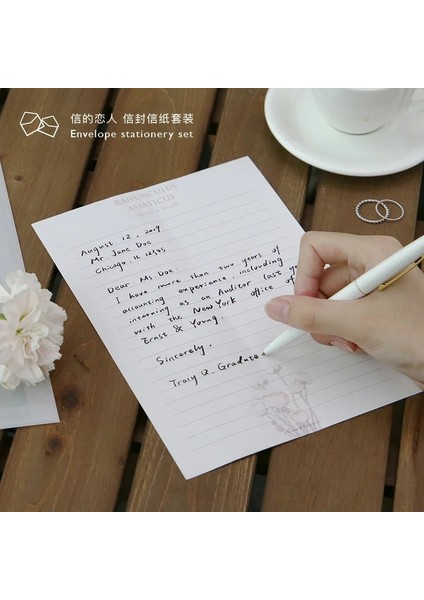 信的恋人 信封信纸套装
Envelope stationery set
RANUNCULUS
ASIATICUS
August 12, 2019
Mr Jane Doe
Chicago. IL 12345
Dear Ms. Doe:
I have more than two years of
accounting experience, including
interning as an Auditor last y
with the New York office of
Ernst & Young.
Sincerely.
Tracy Q. Gradute